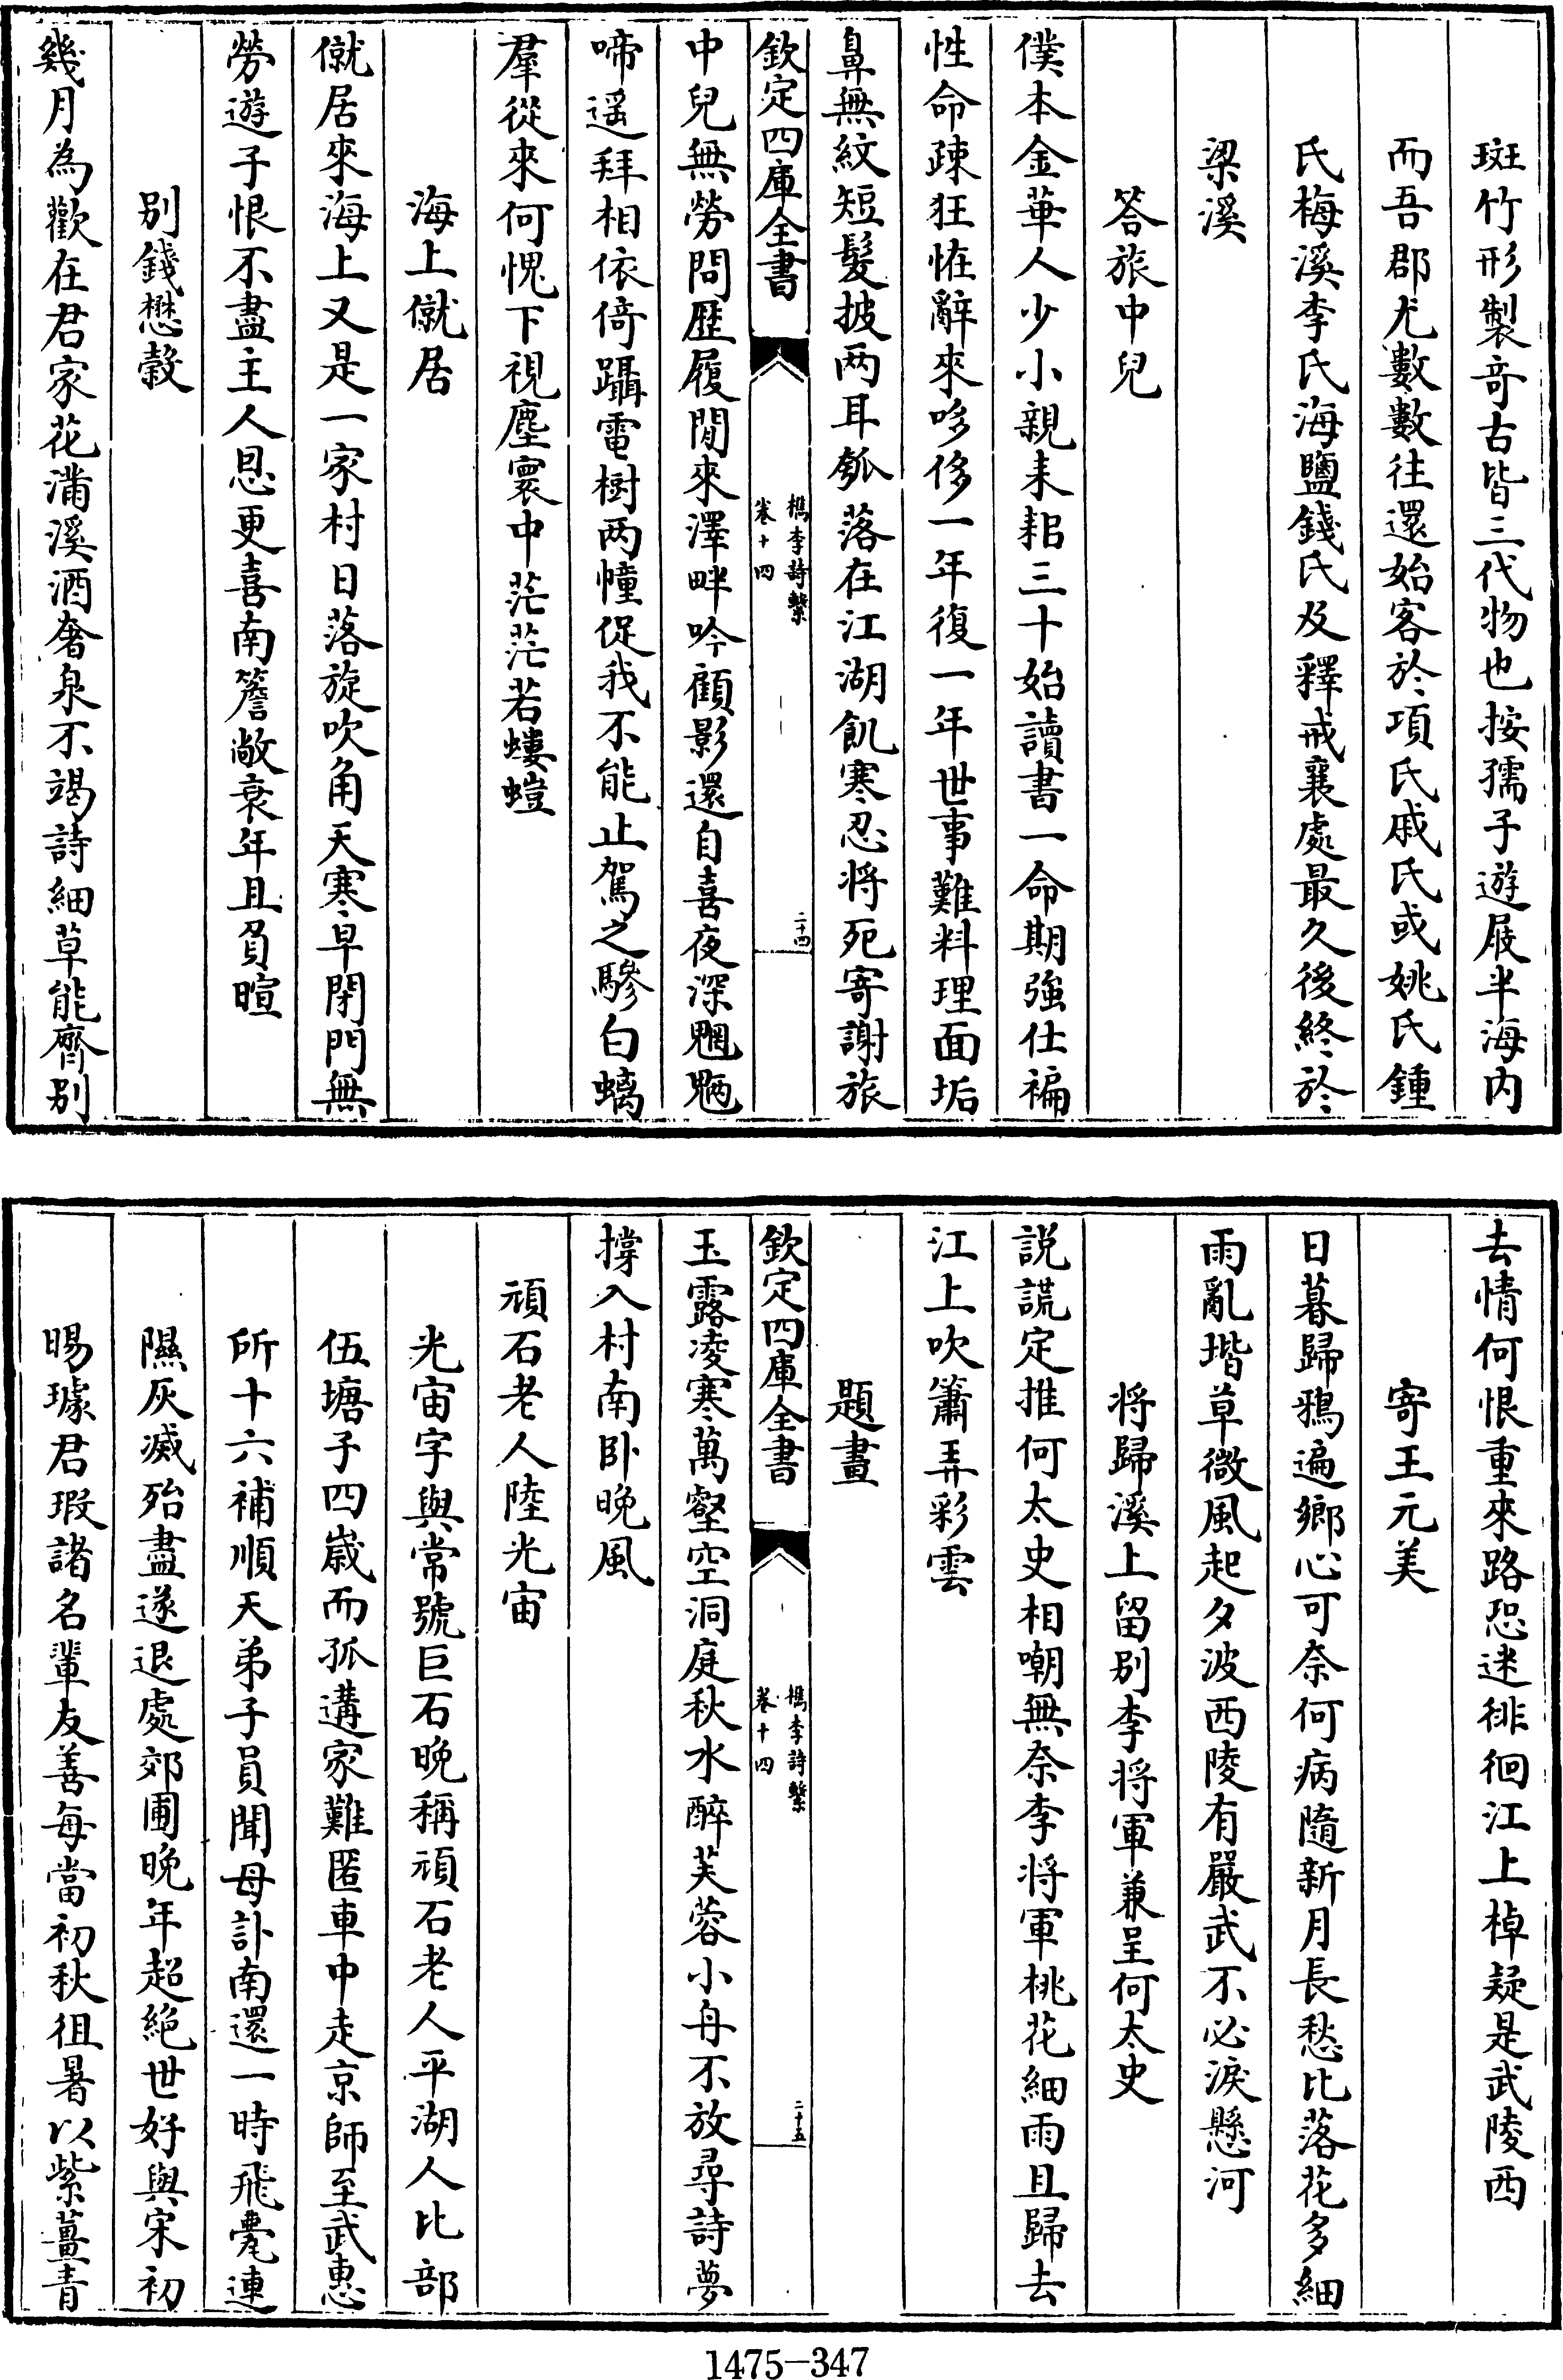 斑竹形製竒古皆三代物也按孺子遊屐半海内
而吾郡尤數數往還始客於項氏戚氏或姚氏鍾
氏梅溪李氏海鹽錢氏及釋戒襄處最久後終於
梁溪
荅旅中兒
僕本金華人少小親耒耜三十始讀書一命期強仕褊
性命疎狂恠辭來哆侈一年復一年世事難料理面垢
鼻無紋短髮披两耳瓠落在江湖飢寒忍将死寄謝旅
欽定四庫全書
檇李詩繫
卷十四
二十四
中兒無勞問歴履閒來澤畔吟顧影還自喜夜深魍魎
啼遥拜相依倚躡電樹两幢促我不能止駕之驂白螭
羣從來何愧下視塵寰中茫茫若螻螘
海上僦居
僦居來海上又是一家村日落旋吹角天寒早閉門無
勞遊子恨不盡主人恩更喜南簷敞衰年且負暄
别錢懋穀
幾月為歡在君家花满溪酒奢泉不竭詩細草能齊别
去情何恨重來路恐迷徘徊江上棹疑是武陵西
寄王元美
日暮歸鴉遍鄉心可奈何病隨新月長愁比落花多細
雨亂堦草微風起夕波西陵有嚴武不必淚懸河
将歸溪上留别李将軍兼呈何太史
説謊定推何太史相嘲無奈李将軍桃花細雨且歸去
江上吹簫弄彩雲
題畫
欽定四庫全書
檇李詩繫
卷十四
二十五
玉露凌寒萬壑空洞庭秋水醉芙蓉小舟不放尋詩夢
撐入村南卧晚風
頑石老人陸光宙
光宙字與常號巨石晚稱頑石老人平湖人比部
伍塘子四歲而孤遘家難匿車中走京師至武惠
所十六補順天弟子員聞母訃南還一時飛鼂連
隰灰滅殆盡遂退處郊圃晚年超絶世好與宋初
暘璩君瑕諸名輩友善每當初秋徂暑以紫薑青
1475-347